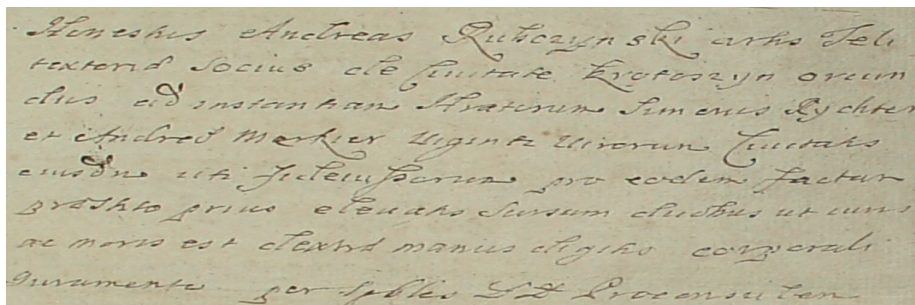 Honestus Andreas Rubczynski artis Teli
textoriæ Socius de Civitate Krotoszyn oriun
dus ad instantiam Hratorum Simonis Rychter
et Andreæ Merkier Viginti Virorum Civitatis
eiusdm uti fideiussorum pro eodem factur
præstito prius elevatis sursum duobus ut iuris
ac moris est dextræ manus digitis corporali
Iuramento per Spbles DD Proconsulem